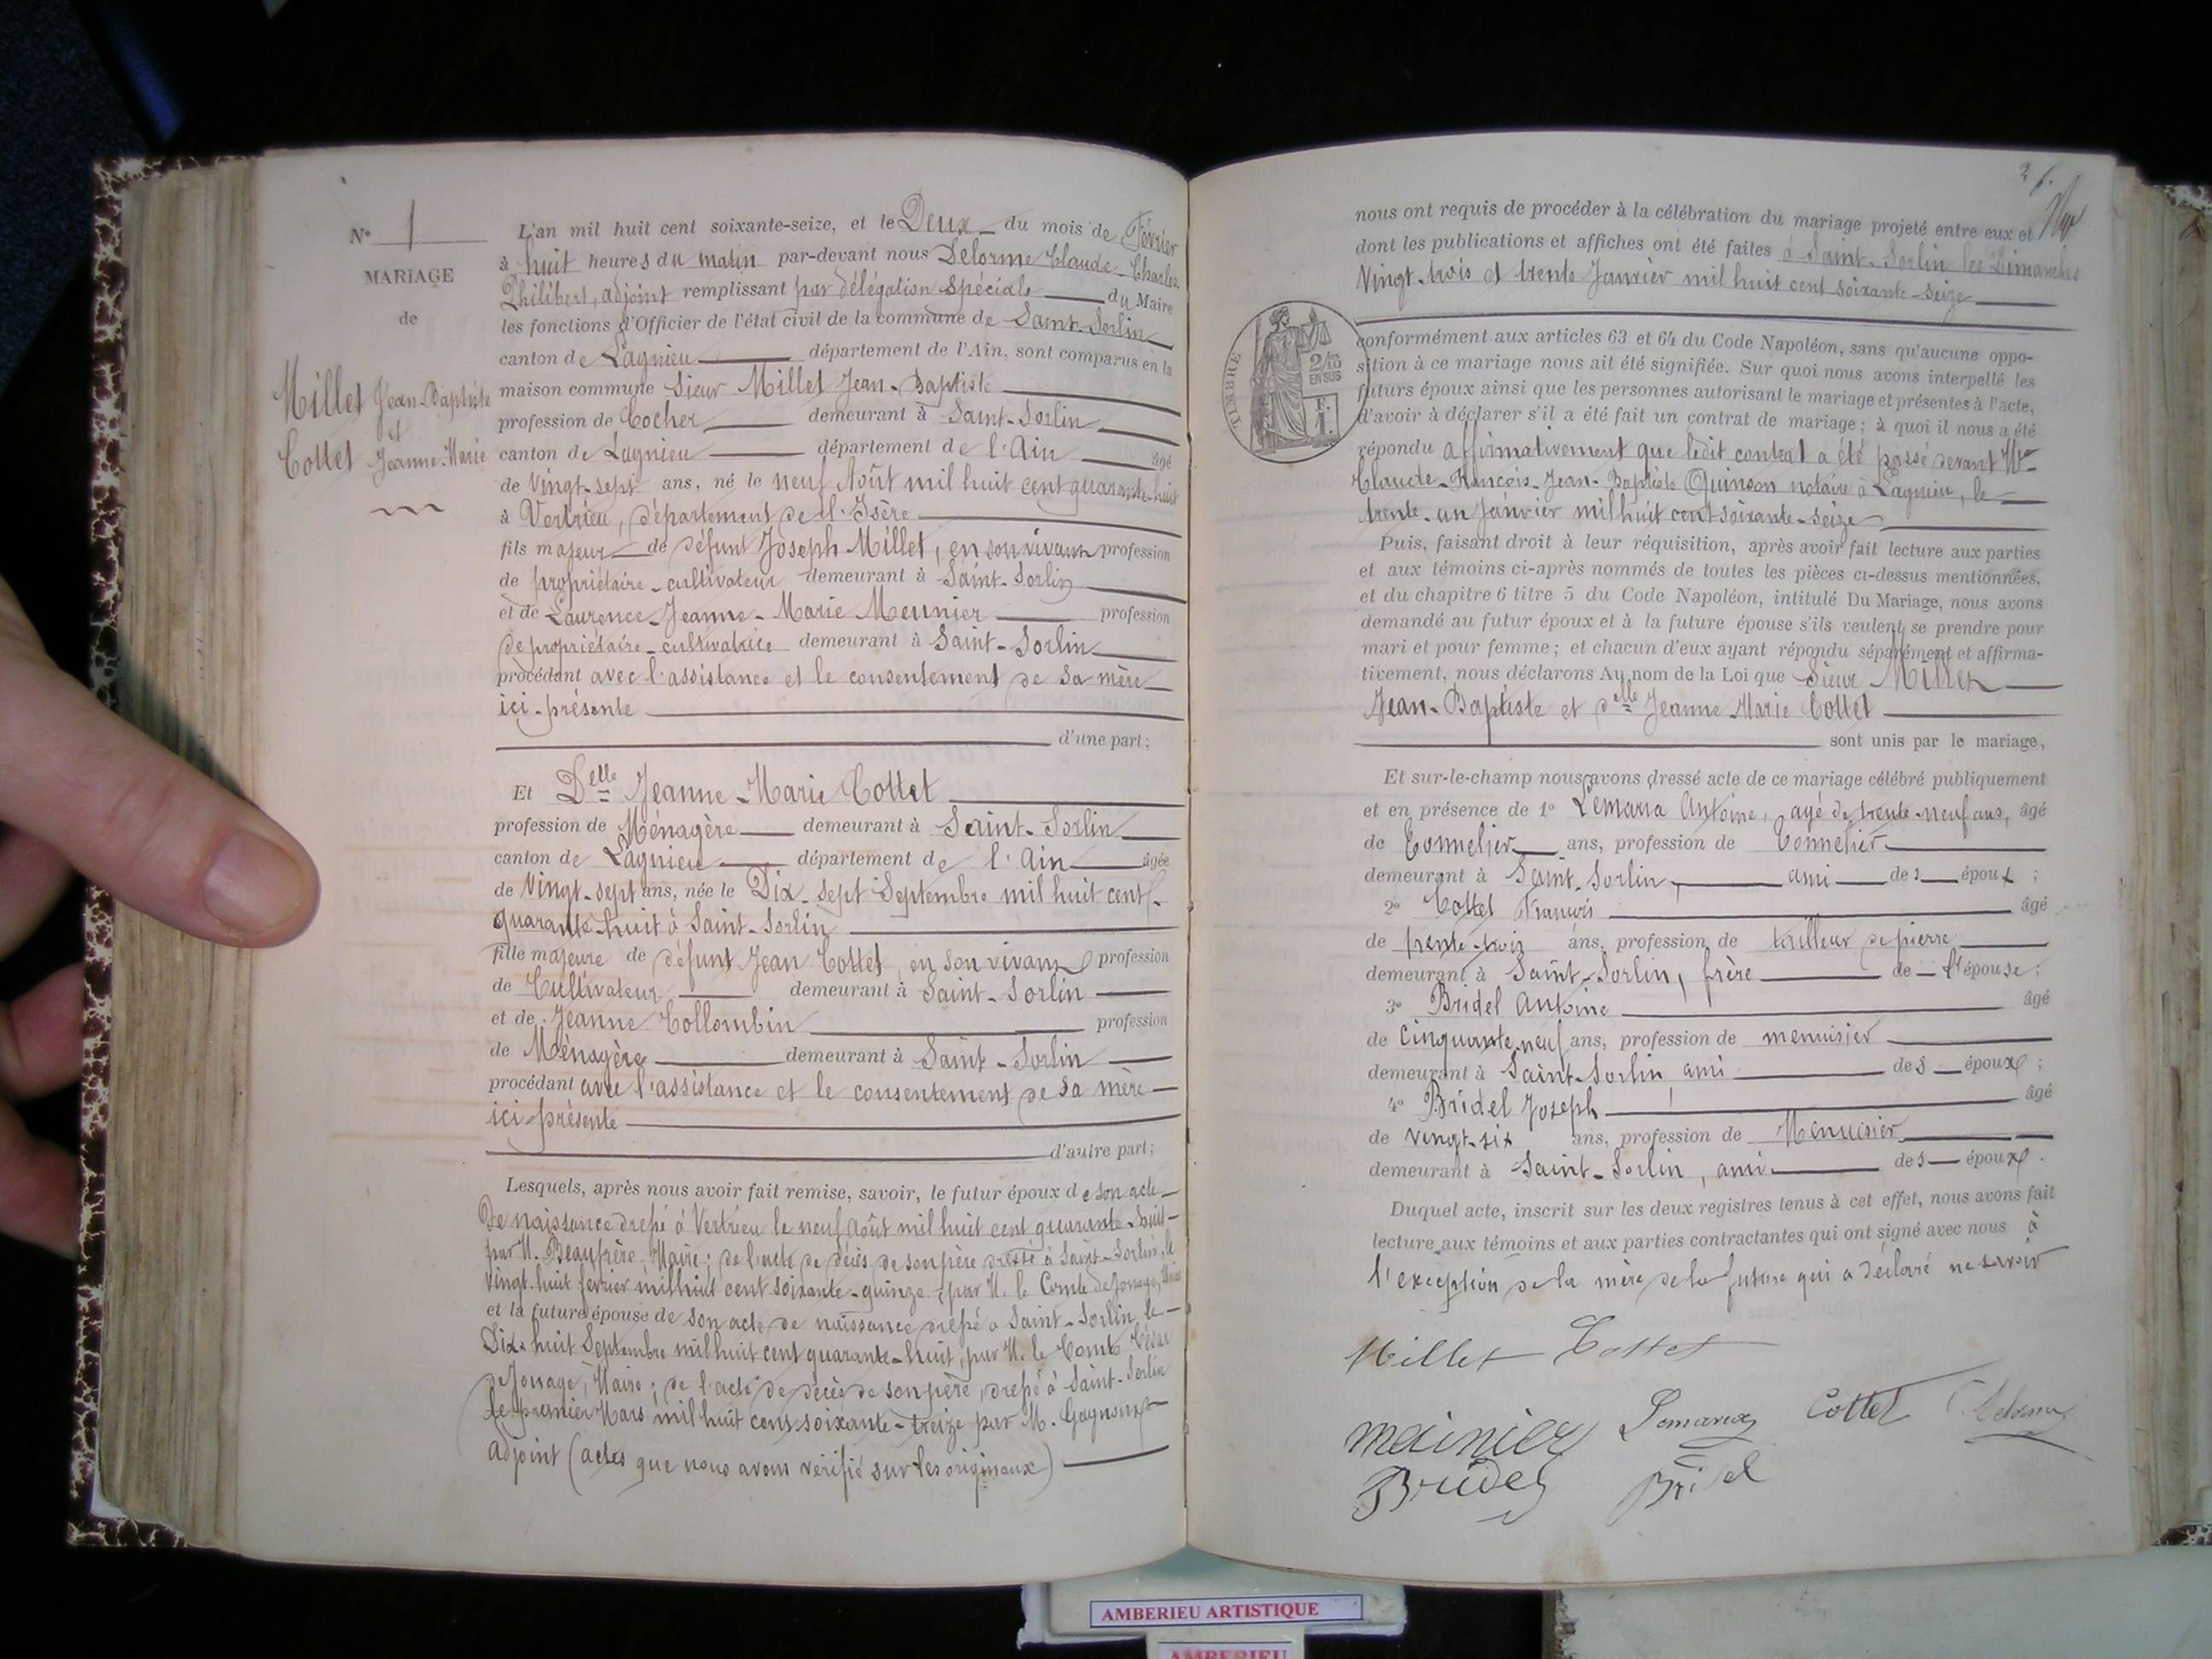 N° 1
MARIAGE
de
Millet Jean-Baptiste
et
Cottet Jeanne-Marie
L'an mil huit cent soixante-seize, et le Deux du mois de Février
à huit heures du matin par-devant nous Delorme Claude-Charles
Philibert, adjoint remplissant par délégation spéciale du Maire
les fonctions d'Officier de l'état civil de la commune de Saint-Sorlin
canton de Lagnieu département de l'Ain, sont comparus en la
maison commune Sieur Millet Jean-Baptiste
profession de Cocher demeurant à Saint-Sorlin
canton de Lagnieu département de l'Ain âgé
de Vingt-sept ans, né le neuf Août mil huit cent quarante-huit
à Vertrieu, département de l'Isère
fils majeur de défunt Joseph Millet, en son vivant profession
de propriétaire-cultivateur demeurant à Saint-Sorlin
et de Laurence-Jeanne-Marie Meunier profession
de propriétaire-cultivatrice demeurant à Saint-Sorlin
procédant avec l'assistance et le consentement de sa mère
ici-présente
d'une part;
Et Delle Jeanne-Marie Cottet
profession de Ménagère demeurant à Saint-Sorlin
canton de Lagnieu département de l'Ain âgée
de Vingt-sept ans, née le Dix-sept Septembre mil huit cent
quarante-huit à Saint-Sorlin
fille majeure de défunt Jean Cottet, en son vivant profession
de Cultivateur demeurant à Saint-Sorlin
et de Jeanne Collombin profession
de Ménagère demeurant à Saint-Sorlin
procédant avec l'assistance et le consentement de sa mère
ici-présente
d'autre part;
Lesquels, après nous avoir fait remise, savoir, le futur époux de son acte
de naissance dressé à Vertrieu le neuf Août mil huit cent quarante-huit
par M. Beaufrère, Maire; de l'acte de décès de son père dressé à Saint-Sorlin, le
Vingt-huit février mil huit cent soixante-quinze, par M. le Comte de Jonage, Maire
et la future épouse de son acte de naissance dressé à Saint-Sorlin le
Dix-huit Septembre mil huit cent quarante-huit, par M. le Comte César
de Jonage, Maire; de l'acte de décès de son père, dressé à Saint-Sorlin
le premier Mars mil huit cent soixante-treize par M.
adjoint (actes que nous avons vérifié sur les originaux)
nous ont requis de procéder à la célébration du mariage projeté entre eux et
dont les publications et affiches ont été faites à Saint-Sorlin les Dimanches
Vingt-trois et trente Janvier mil huit cent soixante-seize
TIMBRE
2/10
EN SUS
conformément aux articles 63 et 64 du Code Napoléon, sans qu'aucune oppo-
sition à ce mariage nous ait été signifiée. Sur quoi nous avons interpellé les
futurs époux ainsi que les personnes autorisant le mariage et présentes à l'acte,
d'avoir à déclarer s'il a été fait un contrat de mariage; à quoi il nous a été
répondu affirmativement que ledit contrat a été passé devant Me
Claude-François-Jean-Baptiste Quinson notaire à Lagnieu, le
trente-un Janvier mil huit cent soixante-seize
Puis, faisant droit à leur réquisition, après avoir fait lecture aux parties
et aux témoins ci-après nommés de toutes les pièces ci-dessus mentionnées,
et du chapitre 6 titre 5 du Code Napoléon, intitulé Du Mariage, nous avons
demandé au futur époux et à la future épouse s'ils veulent se prendre pour
mari et pour femme; et chacun d'eux ayant répondu séparément et affirma-
tivement, nous déclarons Au nom de la Loi que Sieur Millet
Jean-Baptiste et Delle Jeanne-Marie Cottet
sont unis par le mariage,
Et sur-le-champ nous avons dressé acte de ce mariage célébré publiquement
et en présence de 1° Lemaria Antoine, agé de trente-neuf ans, âgé
de Tonnelier ans, profession de Tonnelier
demeurant à Saint-Sorlin, ami des époux;
2° Cottet François âgé
de trente-trois ans, profession de tailleur de pierre
demeurant à Saint-Sorlin, frère de l'épouse;
3° Bridel Antoine âgé
de Cinquante-neuf ans, profession de menuisier
demeurant à Saint-Sorlin ami des époux;
4° Bridel Joseph âgé
de Vingt-six ans, profession de Menuisier
demeurant à Saint-Sorlin, ami des époux.
Duquel acte, inscrit sur les deux registres tenus à cet effet, nous avons fait
lecture aux témoins et aux parties contractantes qui ont signé avec nous à
l'exception de la mère de la future qui a déclaré ne savoir
Millet Cottet
meinier Cottet Delorme
Bridel Bridel
AMBERIEU ARTISTIQUE
AMBERIEU